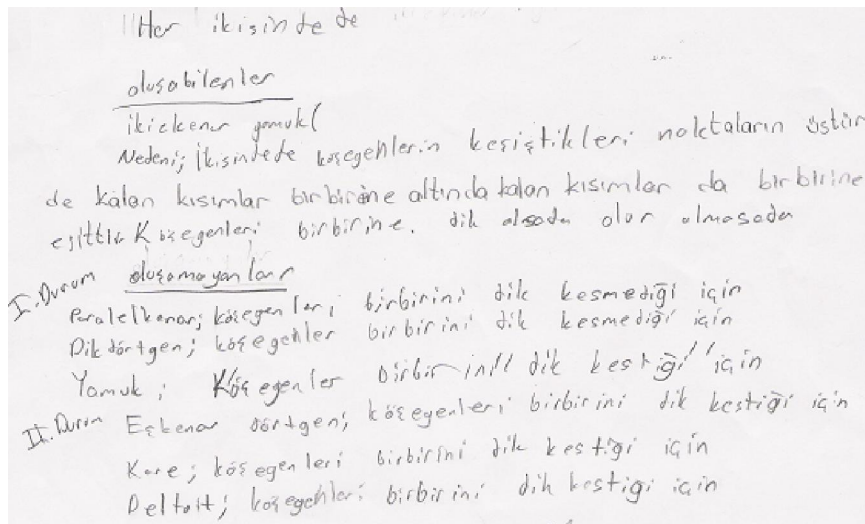 Her ikisinde de
oluşabilenler
ikizkenar yamuk(
Nedeni; İkisindede köşegenlerin kesiştikleri noktaların üstün
de kalan kısımlar birbirine altında kalan kısımlar da birbirine
eşittir Köşegenleri birbirine. dik olsada olur olmasada
I. Durum oluşamayanlar
Paralelkenar; köşegenleri birbirini dik kesmediği için
Dikdörtgen; köşegenler birbirini dik kesmediği için
Yamuk; Köşegenler birbirini dik kestiği için
II. Durum Eşkenar dörtgen; köşegenleri birbirini dik kestiği için
Kare; köşegenleri birbirini dik kestiği için
Deltoit; köşegenleri birbirini dik kestiği için